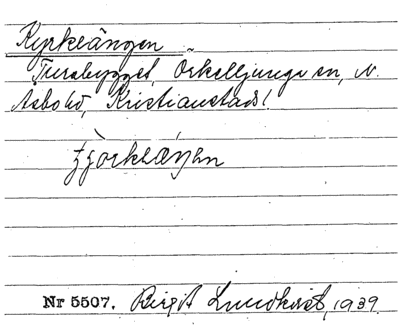 Kyrkeängen
Tursbygget, Örkelljunga sn, N.
Åsbo hd, Kristianstads l.
Nr 5507. Birgit Lundkvist, 1939.